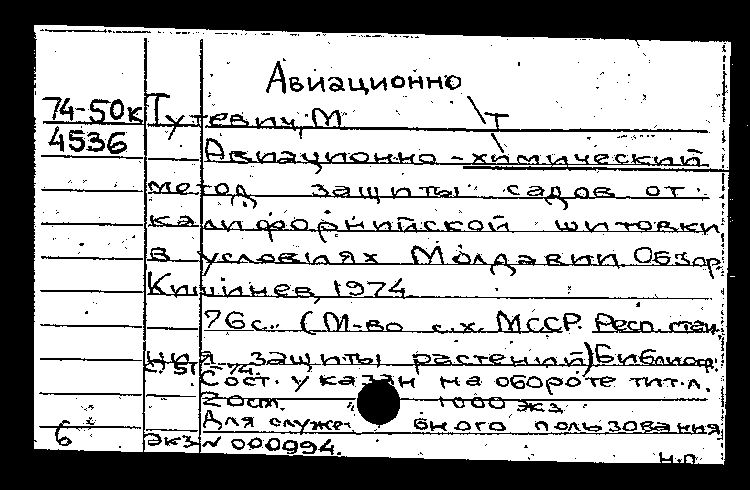 Авиационно
74-50к Гутевич, М. Т
4536 Авиационно-химический
метод защиты садов от
калифорнийской щитовки
в условиях Молдавии. Обзор.
Кишинев, 1974
76с. (М-во с.х. МССР. Респ. стан
ция защиты растений) Библиогр:
с. 51-74.
Сост. указан на обороте тит.л.
20см. 1000 экз
Для служебного пользования
6 экз N 000094.
н.п